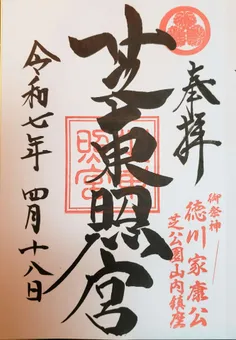 奉拝
御祭神
徳川家康公
芝公園山内鎮座
芝東照宮
令和七年 四月十八日